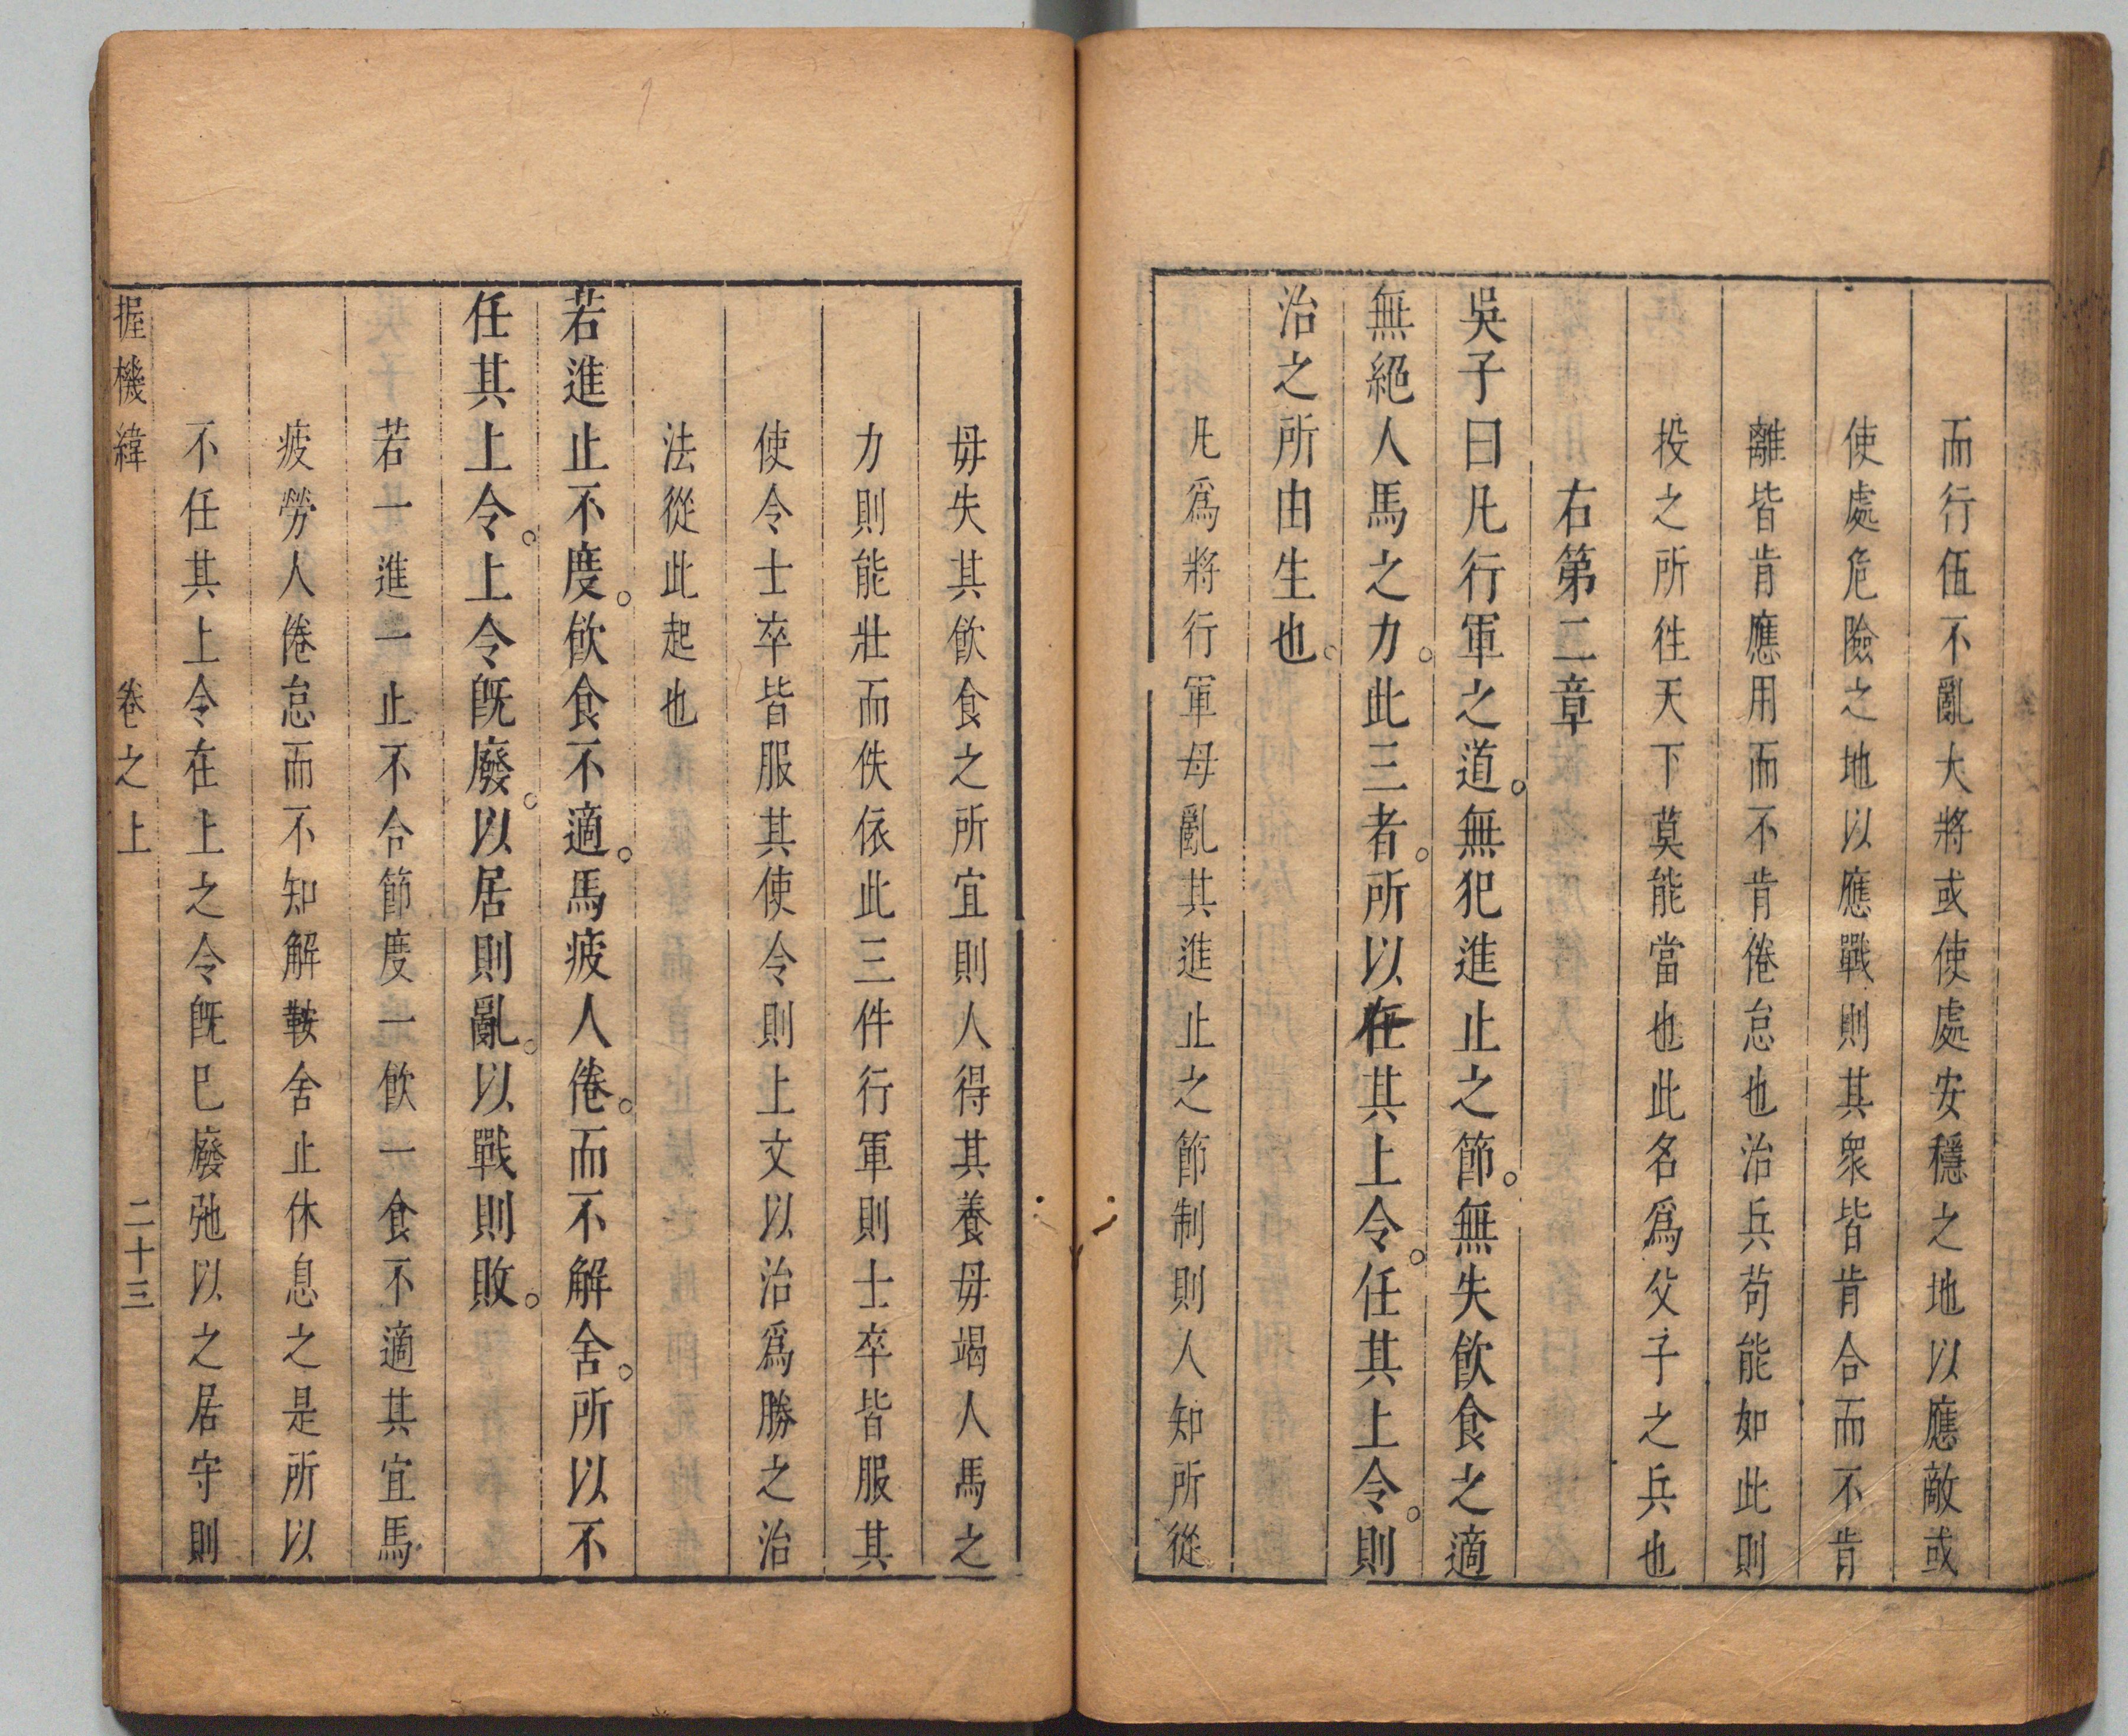 而行伍不亂大將或使處安穩之地以應敵或
使處危險之地以應戰則其衆皆肯合而不肯
離皆肯應用而不肯倦怠也治兵苟能如此則
投之所徃天下莫能當也此名爲父子之兵也
右第二章
吳子曰凡行軍之道。無犯進止之節。無失飲食之適
無絕人馬之力。此三者。所以任其上令。任其上令。則
治之所由生也。
凡爲將行軍毋亂其進止之節制則人知所從
毋失其飲食之所宜則人得其養毋竭人馬之
力則能壯而佚依此三件行軍則士卒皆服其
使令士卒皆服其使令則上文以治爲勝之治
法從此起也
若進止不度。飲食不適。馬疲人倦。而不解舍。所以不
任其上令。上令旣廢。以居則亂。以戰則敗。
若一進一止不合節度一飲一食不適其宜馬
疲勞人倦怠而不知解鞍舍止休息之是所以
不任其上令在上之令旣已廢弛以之居守則
握機緯 卷之上 二十三